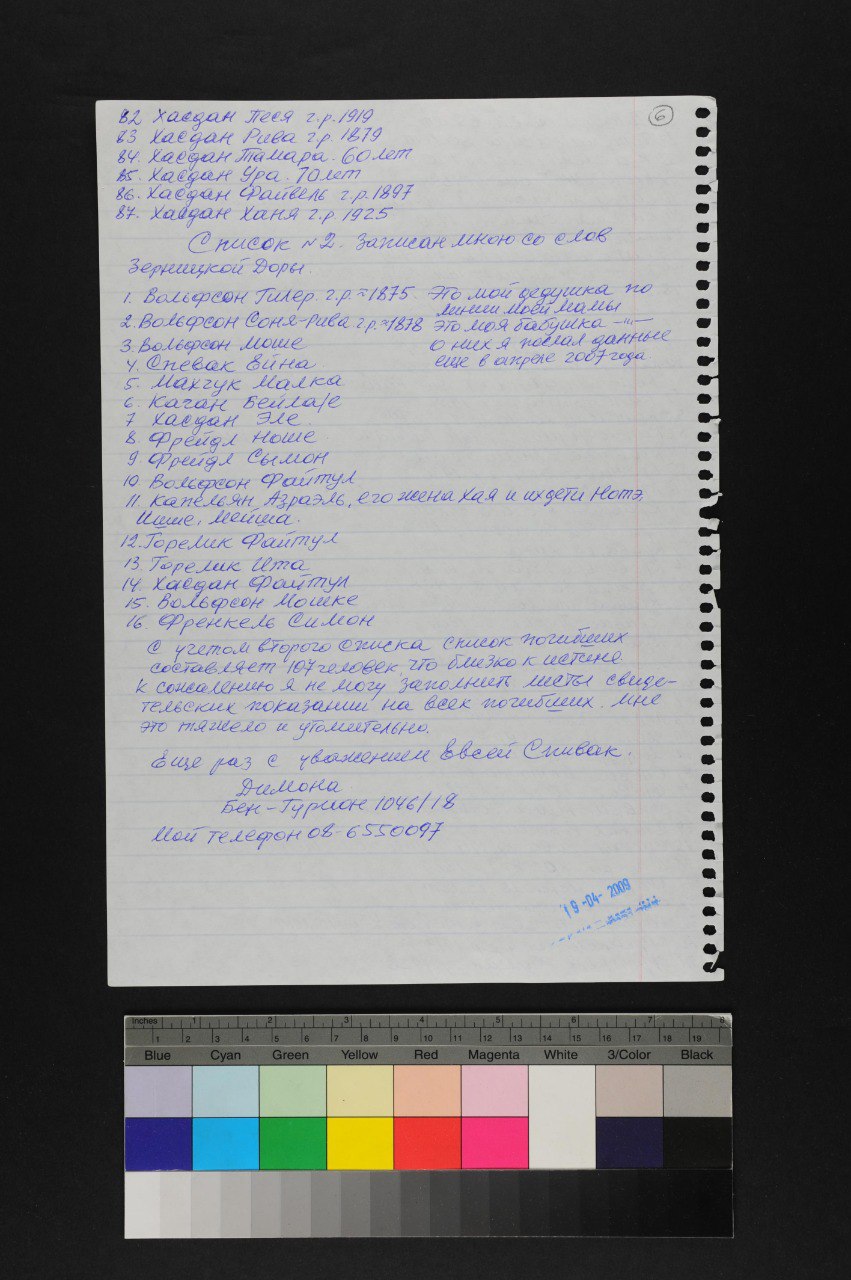 6
82 Хасдан Песя г.р. 1919
83 Хасдан Рива г.р. 1879
84. Хасдан Тамара. 60 лет
85. Хасдан Ура. 70 лет
86. Хасдан Файвель г.р. 1897
87. Хасдан Ханя г.р 1925
Список №2. Записан мною со слов
Зерницкой Доры.
1. Вольфсон Гилер. г.р ≈ 1875 Это мой дедушка по
линии моей мамы
2. Вольфсон Соня-Рива г.р. ≈ 1878 это моя бабушка —"—
3. Вольфсон Моше о них я послал данные
4. Спевак Ейна. еще в апреле 2007 года
5. Махчук Малка
6. Каган Бейла/е
7 Хасдан Эле.
8. Фрейдл Ноше.
9 Фрейдл Сымон
10 Вольфсон Файтул
11. Капельян Азраэль, его жена Хая и их дети Нотэ,
Ише, Мейша.
12. Горелик Файтул
13. Горелик Ита
14. Хасдан Файтул
15. Вольфсон Мошке
16. Френкель Симон
С учетом второго списка список погибших
составляет 107 человек что близко к истине.
К сожалению я не могу заполнить листы свиде-
тельских показаний на всех погибших. Мне
это тяжело и утомительно.
Еще раз с уважением Евсей Спивак.
Димона
Бен-Гурион 1046/18
Мой телефон 08-6550097
19 -04- 2009
Inches 1 2 3 4 5 6 7 8
1 2 3 4 5 6 7 8 9 10 11 12 13 14 15 16 17 18 19
Blue Cyan Green Yellow Red Magenta White 3/Color Black